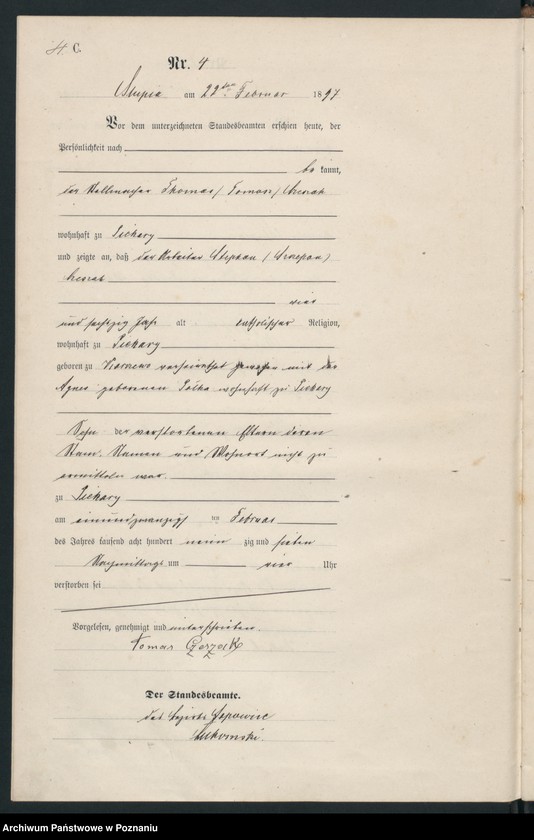 C.
Nr. 4
Slupia am 22ten Februar 1897
Vor dem unterzeichneten Standesbeamten erschien heute, der
Persönlichkeit nach
be kannt,
der Stellmacher Thomas / Tomas /
wohnhaft zu Piekary
und zeigte an, daß der Arbeiter Stephan / Szczepan /
vier
und sechzig Jahr alt katholischer Religion,
wohnhaft zu Piekary
geboren zu verheirathet gewesen mit der
Agnes geborenen Polka wohnhaft zu Piekary
Sohn der verstorbenen Eltern deren
Namen und Wohnort nicht zu
ermitteln war.
zu Piekary
am einundzwanzigst en Februar
des Jahres tausend acht hundert neun zig und sieben
Nachmittags um vier Uhr
verstorben sei
Vorgelesen, genehmigt und unterschrieben.
Tomas
Der Standesbeamte.
des Bezirks
Archiwum Państwowe w Poznaniu